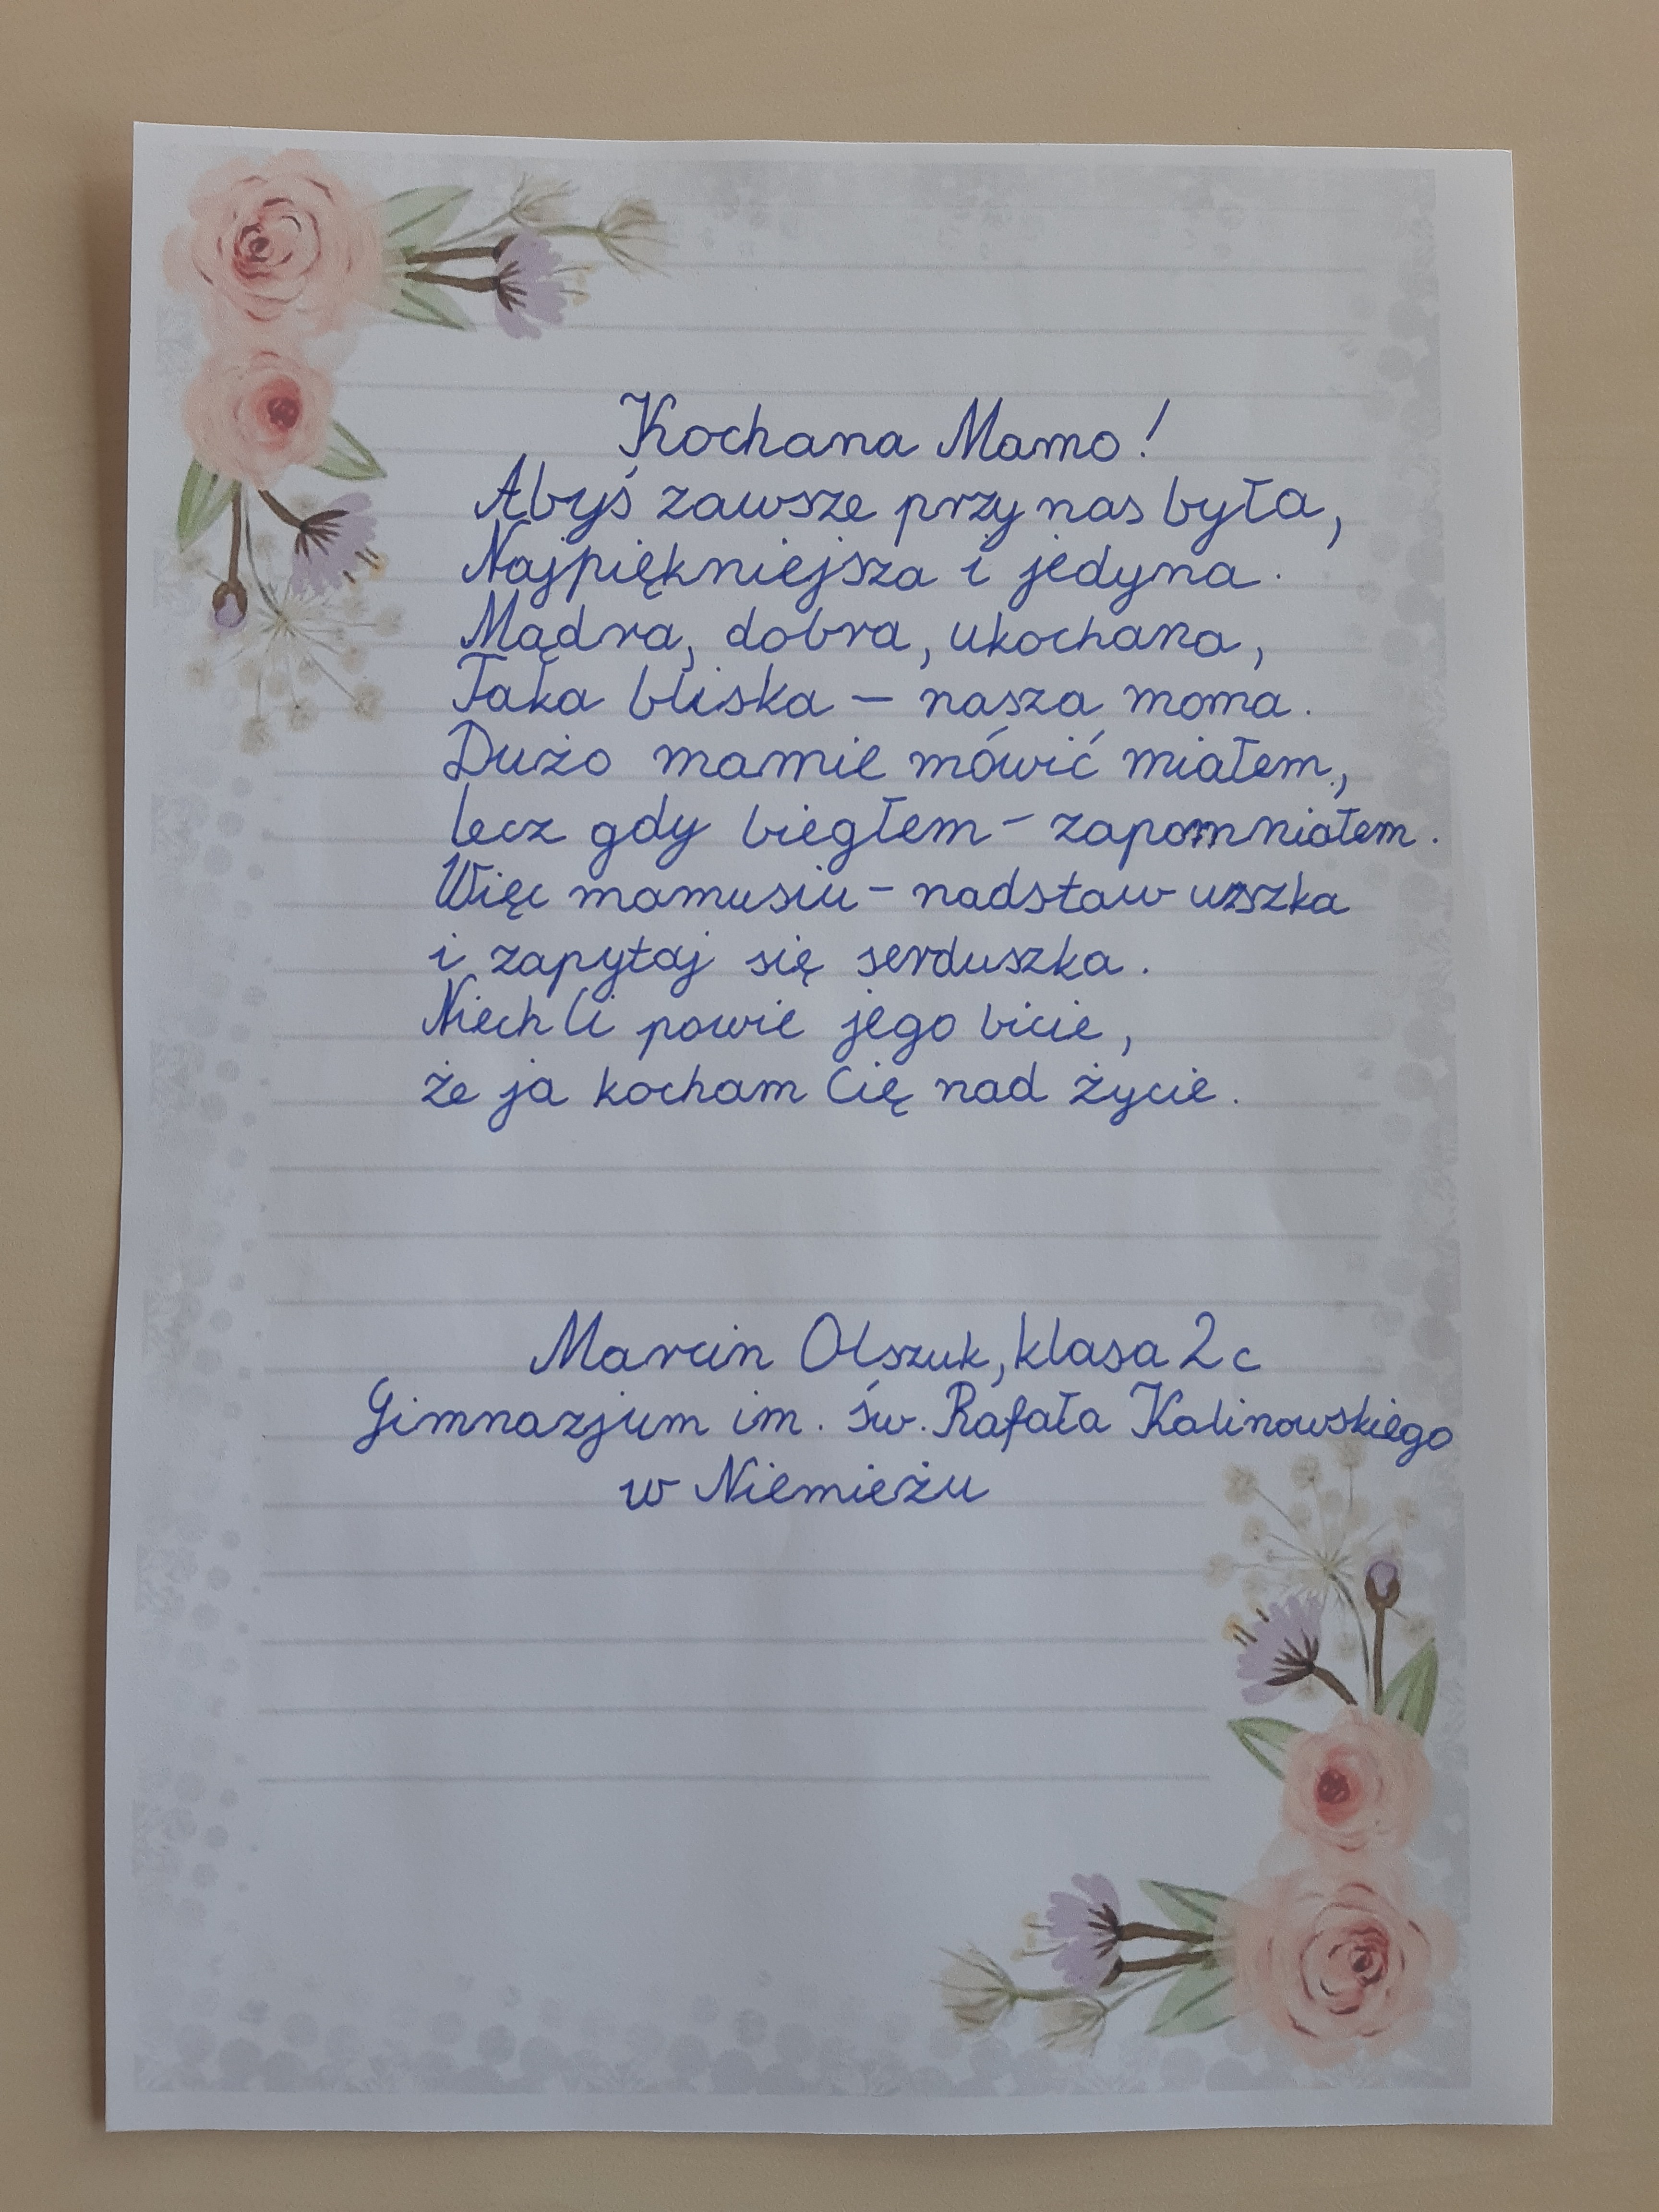 Kochana Mamo!
Abyś zawsze przy nas była,
Najpiękniejsza i jedyna.
Mądra, dobra, ukochana,
Taka bliska – nasza mama.
Dużo mamie mówić miałem,
lecz gdy biegłem – zapomniałem.
Więc mamusiu – nadstaw uszka
i zapytaj się serduszka.
Niech Ci powie jego bicie,
że ja kocham Cię nad życie.
Marcin Olszuk, klasa 2c
Gimnazjum im. św. Rafała Kalinowskiego
w Niemieżu